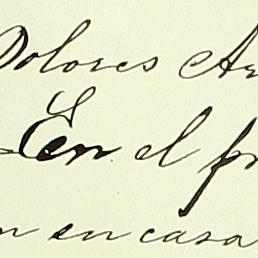 Dolores Ar
En el pr
n en casa